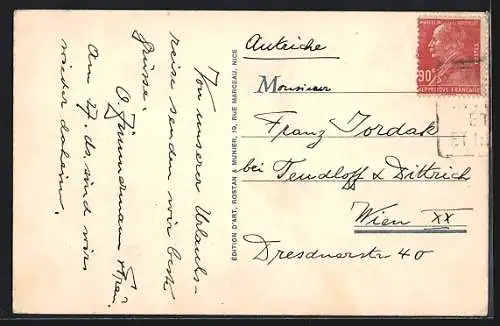 Von unserer Urlaubs-
reise senden wir beste
Grüsse.
O. Zimmermann
Am 27. ds. sind wir
wieder daheim.
ÉDITION D'ART, ROSTAN & MUNIER, 19, RUE MARCEAU, NICE
Autriche
Monsieur
Franz Jordak
bei Tendloff & Dittrich
Wien XX
Dresdnerstr 40
90c
REPUBLIQUE FRANÇAISE
ET
ET